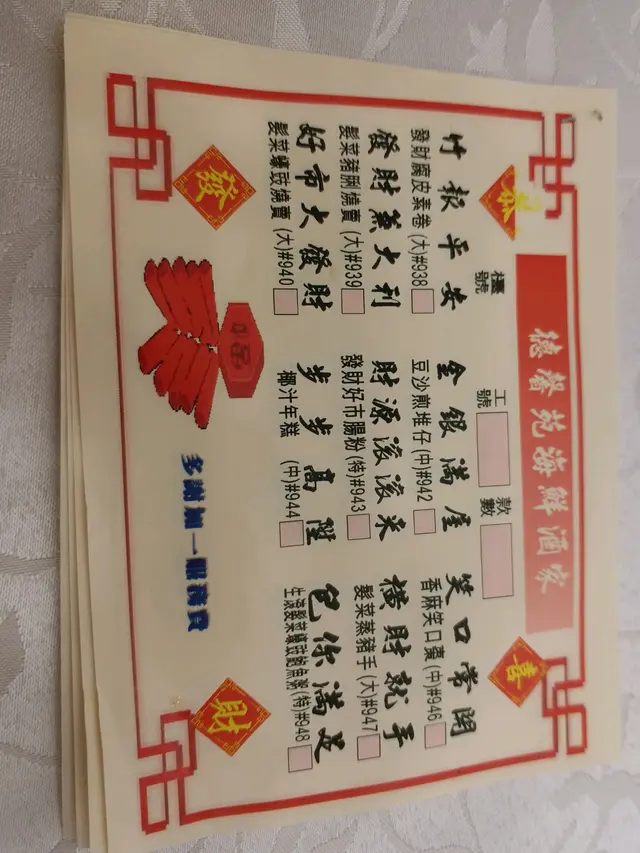 德馨苑海鮮酒家
恭 喜
檯號 工號 款數
竹報平安 金銀滿屋 笑口常開
發財腐皮素卷(大)#938 豆沙煎堆仔(中)#942 香麻笑口棗(中)#946
發財兼大利 財源滾滾來 橫財就手
髮菜豬脷燒賣(大)#939 發財好市腸粉(特)#943 髮菜蒸豬手(大)#947
好市大發財 步步高陞 包你滿足
髮菜蠔豉燒賣(大)#940 椰汁年糕 (中)#944 生滾髮菜蠔豉鮑魚粥(特)#948
發 財
多謝加一服務費